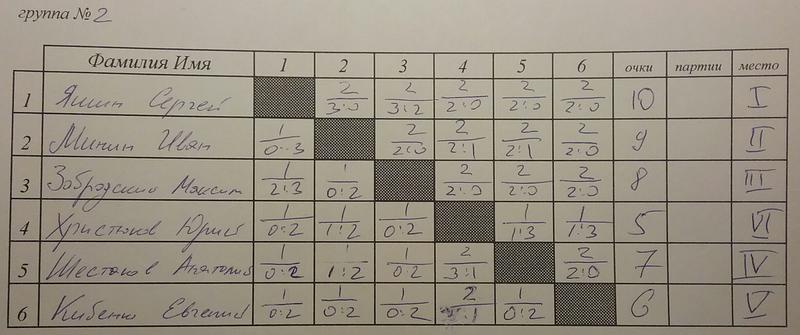 группа № 2
Фамилия Имя 1 2 3 4 5 6 очки партии место
1 Яшин Сергей 2 3:0 2 3:2 2 2:0 2 2:0 2 2:0 10 I
2 Минин Иван 1 0:3 2 2:0 2 2:1 2 2:1 2 2:0 9 II
3 Забродский Максим 1 2:3 1 0:2 2 2:0 2 2:0 2 2:0 8 III
4 Христюков Юрий 1 0:2 1 1:2 1 0:2 1 1:3 1 1:3 5 VI
5 Шестаков Анатолий 1 0:2 1 1:2 1 0:2 2 3:1 2 2:0 7 IV
6 Кибенко Евгений 1 0:2 1 0:2 1 0:2 2 :1 1 0:2 6 V